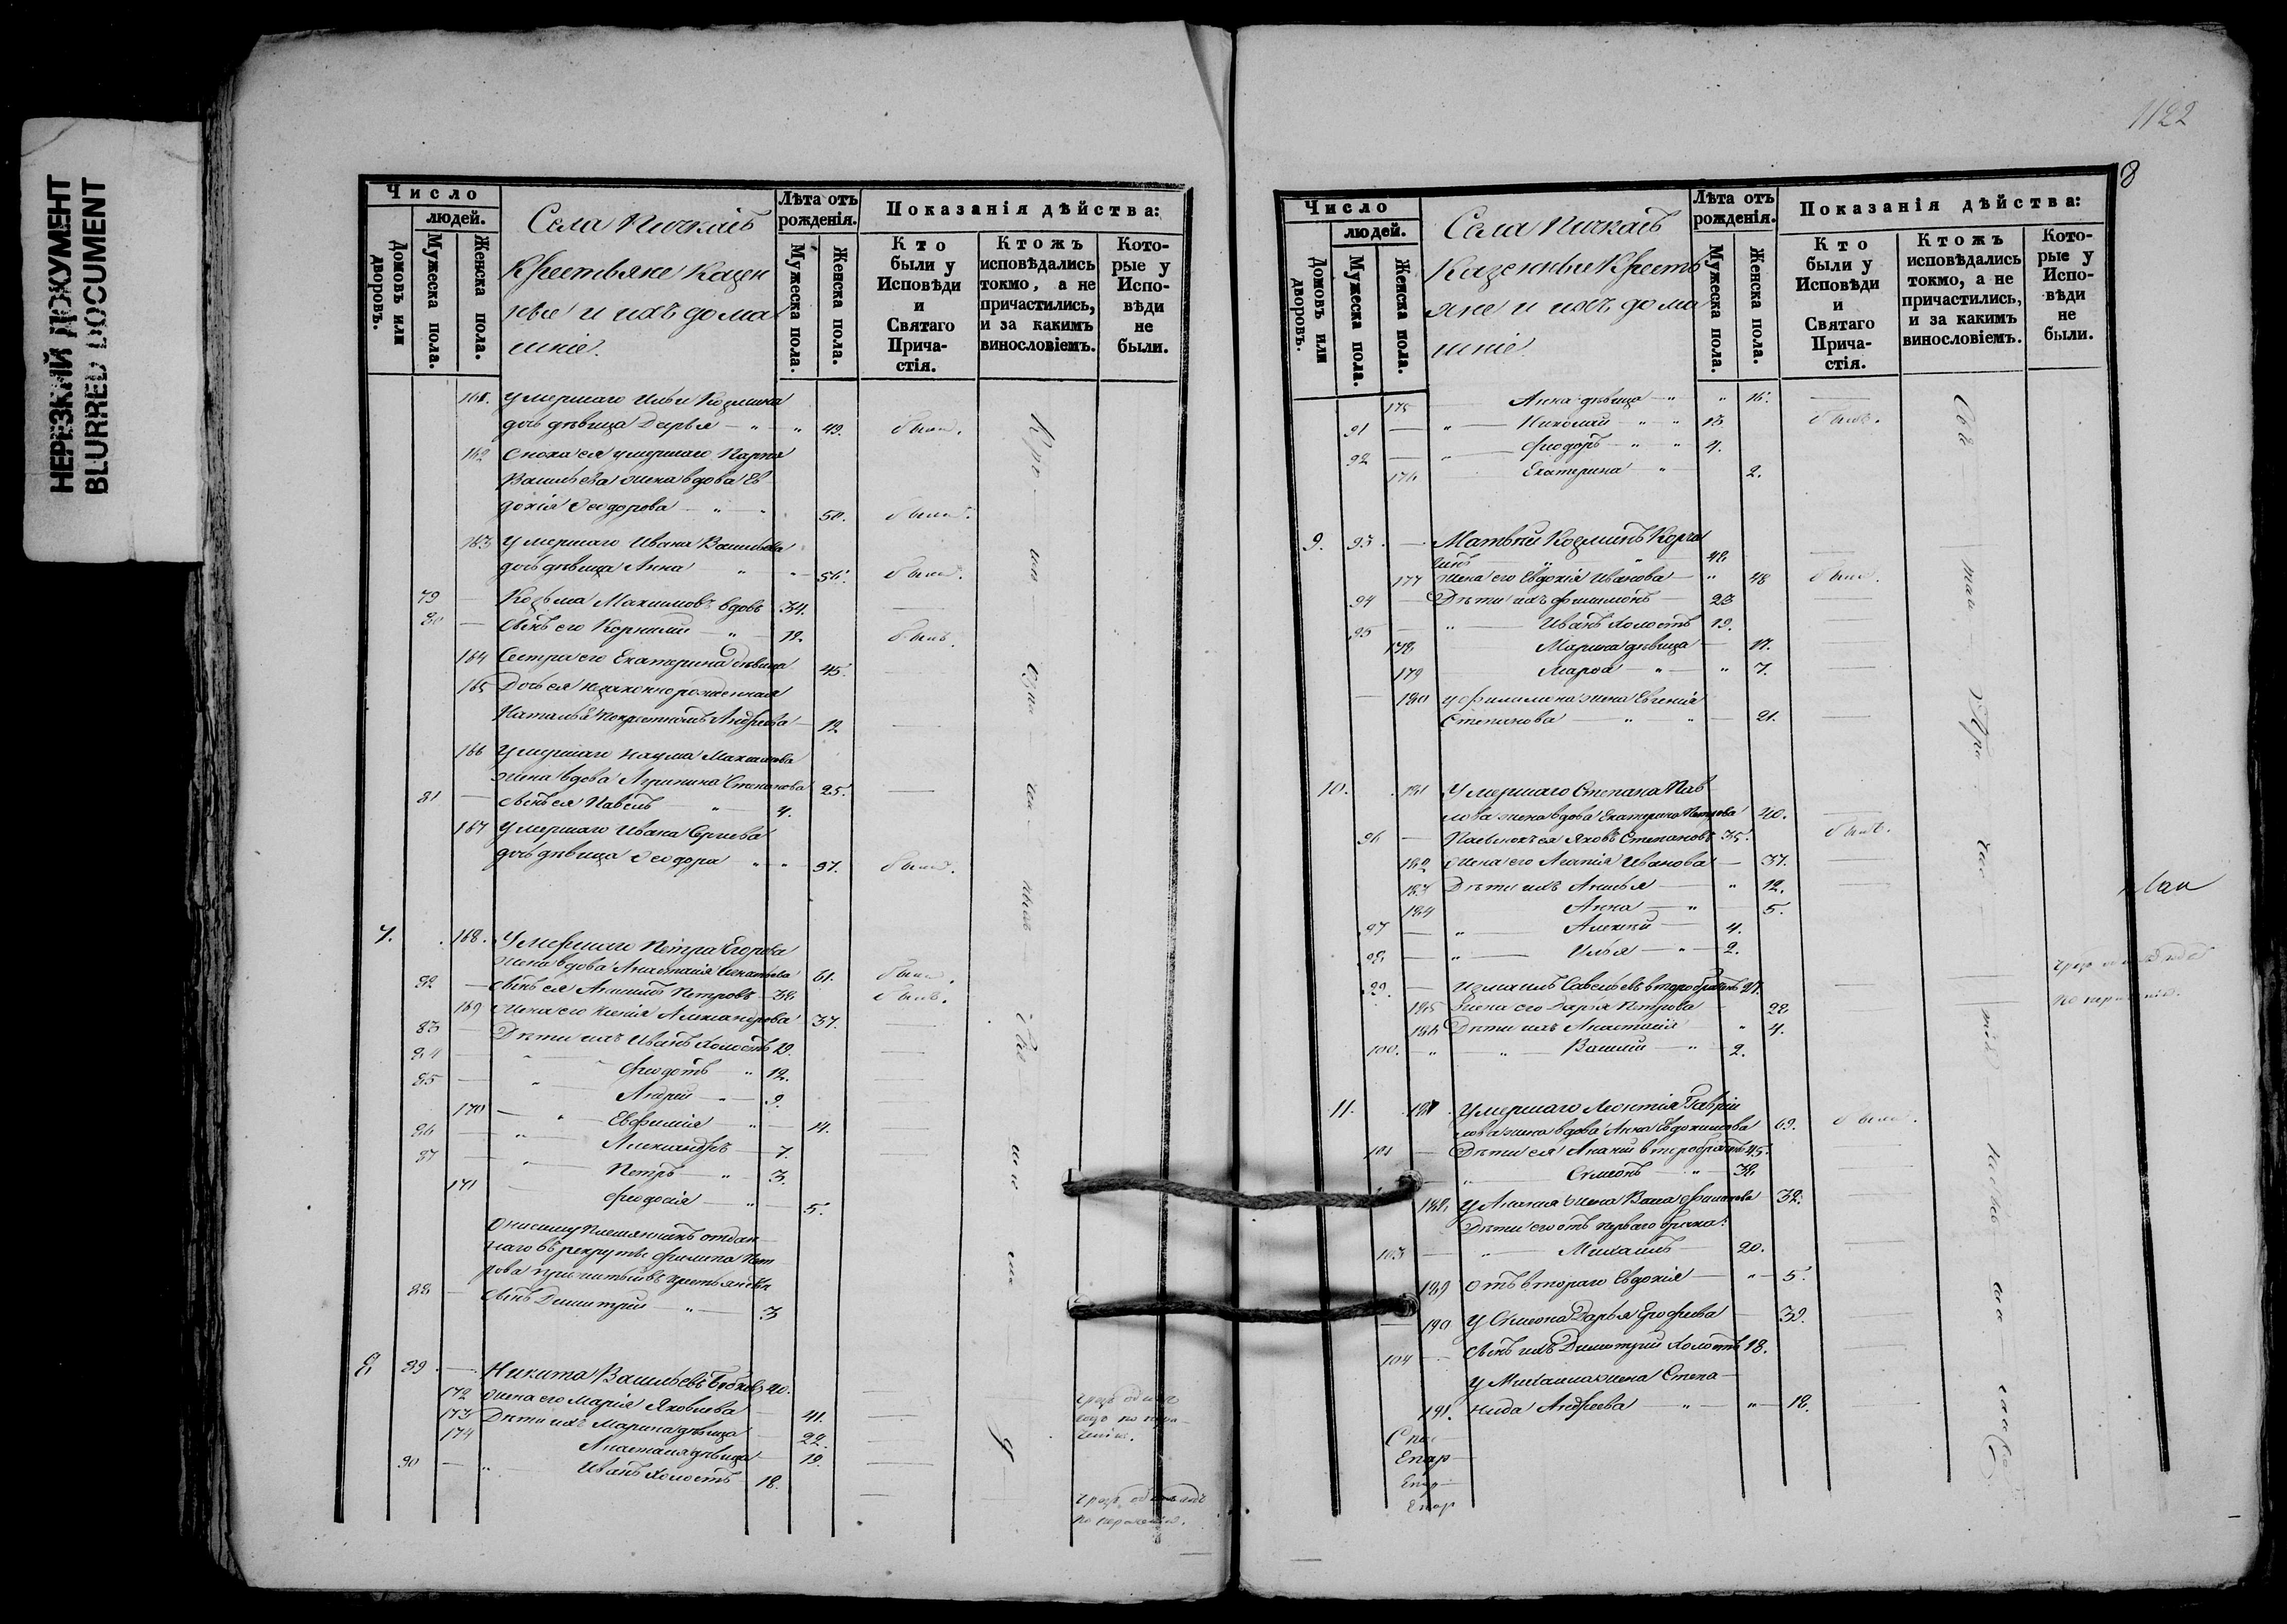 НЕРЕЗКИЙ ДОКУМЕНТ
BLURRED DOCUMENT
Число
людей.
Домовъ или дворовъ.
Мужеска пола.
Женска пола.
Села Пичкасъ
Крестьяне Казен
ные и ихъ дома
шніе.
Лѣта отъ рожденія.
Мужеска пола.
Женска пола.
Показанія дѣйства:
Кто были у Исповѣди и Святаго Причастія.
Ктожъ исповѣдались токмо, а не причастились, и за какимъ винословіемъ.
Которые у Исповѣди не были.
161. Умершаго Ильи Козмина
дочь дѣвица Дарья 49. была.
162 Сноха ея умершаго Карпа
Васильева жена вдова Ев
докія Феодорова 50. была.
163 Умершаго Ивана Васильева
дочь дѣвица Анна 56. была.
79 Козьма Максимовъ вдовъ 34.
80 Сынъ его Корнилій 12. былъ.
164 Сестра его Екатерина дѣвица 45.
165 Дочь ея незаконнорожденная
Наталья Андреева 12
166 Умершаго Наума Максимова
жена вдова Агрипина Степанова 25.
81 Сынъ ея Павелъ 4.
167 Умершаго Ивана Сергѣева
дочь дѣвица Феодора 37. была.
7. 168. Умершаго Петра Егорова
жена вдова Анастасія Игнатьева 61. была.
82 Сынъ ея Петровъ 38 былъ.
169 Жена его Ксенія Александрова 37.
83 Дѣти ихъ Иванъ Холостъ 19.
84 Феодотъ 12.
85 Андрей 9.
170 Евфимія 14.
86 Александръ 7.
87 Петръ 3.
171 Феодосія 5.
отдан
наго въ рекруты Филипа Пет
рова
88 Сынъ Димитрій 3
8 89. Никита Васильевъ 40.
172 Жена его Марія Яковлева 41.
173 Дѣти ихъ Марина дѣвица 22.
174 Анастасія дѣвица 19.
90 Иванъ Холостъ 18.
1122
8
Число
людей.
Домовъ или дворовъ.
Мужеска пола.
Женска пола.
Села Пичкасъ
Казенные Кресть
яне и ихъ дома
шніе.
Лѣта отъ рожденія.
Мужеска пола.
Женска пола.
Показанія дѣйства:
Кто были у Исповѣди и Святаго Причастія.
Ктожъ исповѣдались токмо, а не причастились, и за какимъ винословіемъ.
Которые у Исповѣди не были.
175 Анна дѣвица 16.
91 Николай 13 былъ.
92 Феодоръ 4.
176 Екатерина 2.
9. 93. Матвѣй Козминъ
48
177 Жена его Евдокія Иванова 48 была.
94 Дѣти ихъ Филимонъ 23
95 Иванъ Холостъ 19.
178 Марина дѣвица 17.
179 Марѳа 7.
180 У Филимона жена Евгенія
Степанова 21.
10. 181 Умершаго Степана Пав
лова жена вдова Екатерина Петрова 40.
96 Пасынокъ ея Яковъ Степановъ 35. былъ.
182 Жена его Агапія Иванова 37.
183 Дѣти ихъ Анисья 12.
184 Анна 5.
97 Алексѣй 4.
98 Илья 2.
99 Измаилъ Савельевъ второбрачн 27.
185 Жена его Дарья Петрова 22
186 Дѣти ихъ Анастасія 4.
100. Василій 2.
11. 187. Умершаго Леонтія Гаврии
лова жена вдова Анна Евдокимова 69. была.
101 Дѣти ея Ананій второбрачн 45.
Симеонъ 38
188. У Ананія жена Васа Филипова 32.
Дѣти его отъ перваго брака:
103 Михаилъ 20.
189 отъ втораго Евдокія 5.
190 У Симеона Дарья Ерофеева 39.
104 Сынъ ихъ Димитрій Холостъ 18.
У Михаила жена Степа
191. нида Андреева 18.